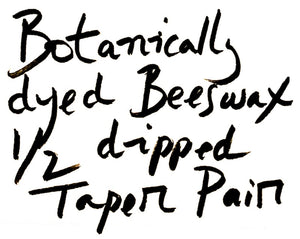 Botanically
dyed Beeswax
1/2 dipped
Taper Pair